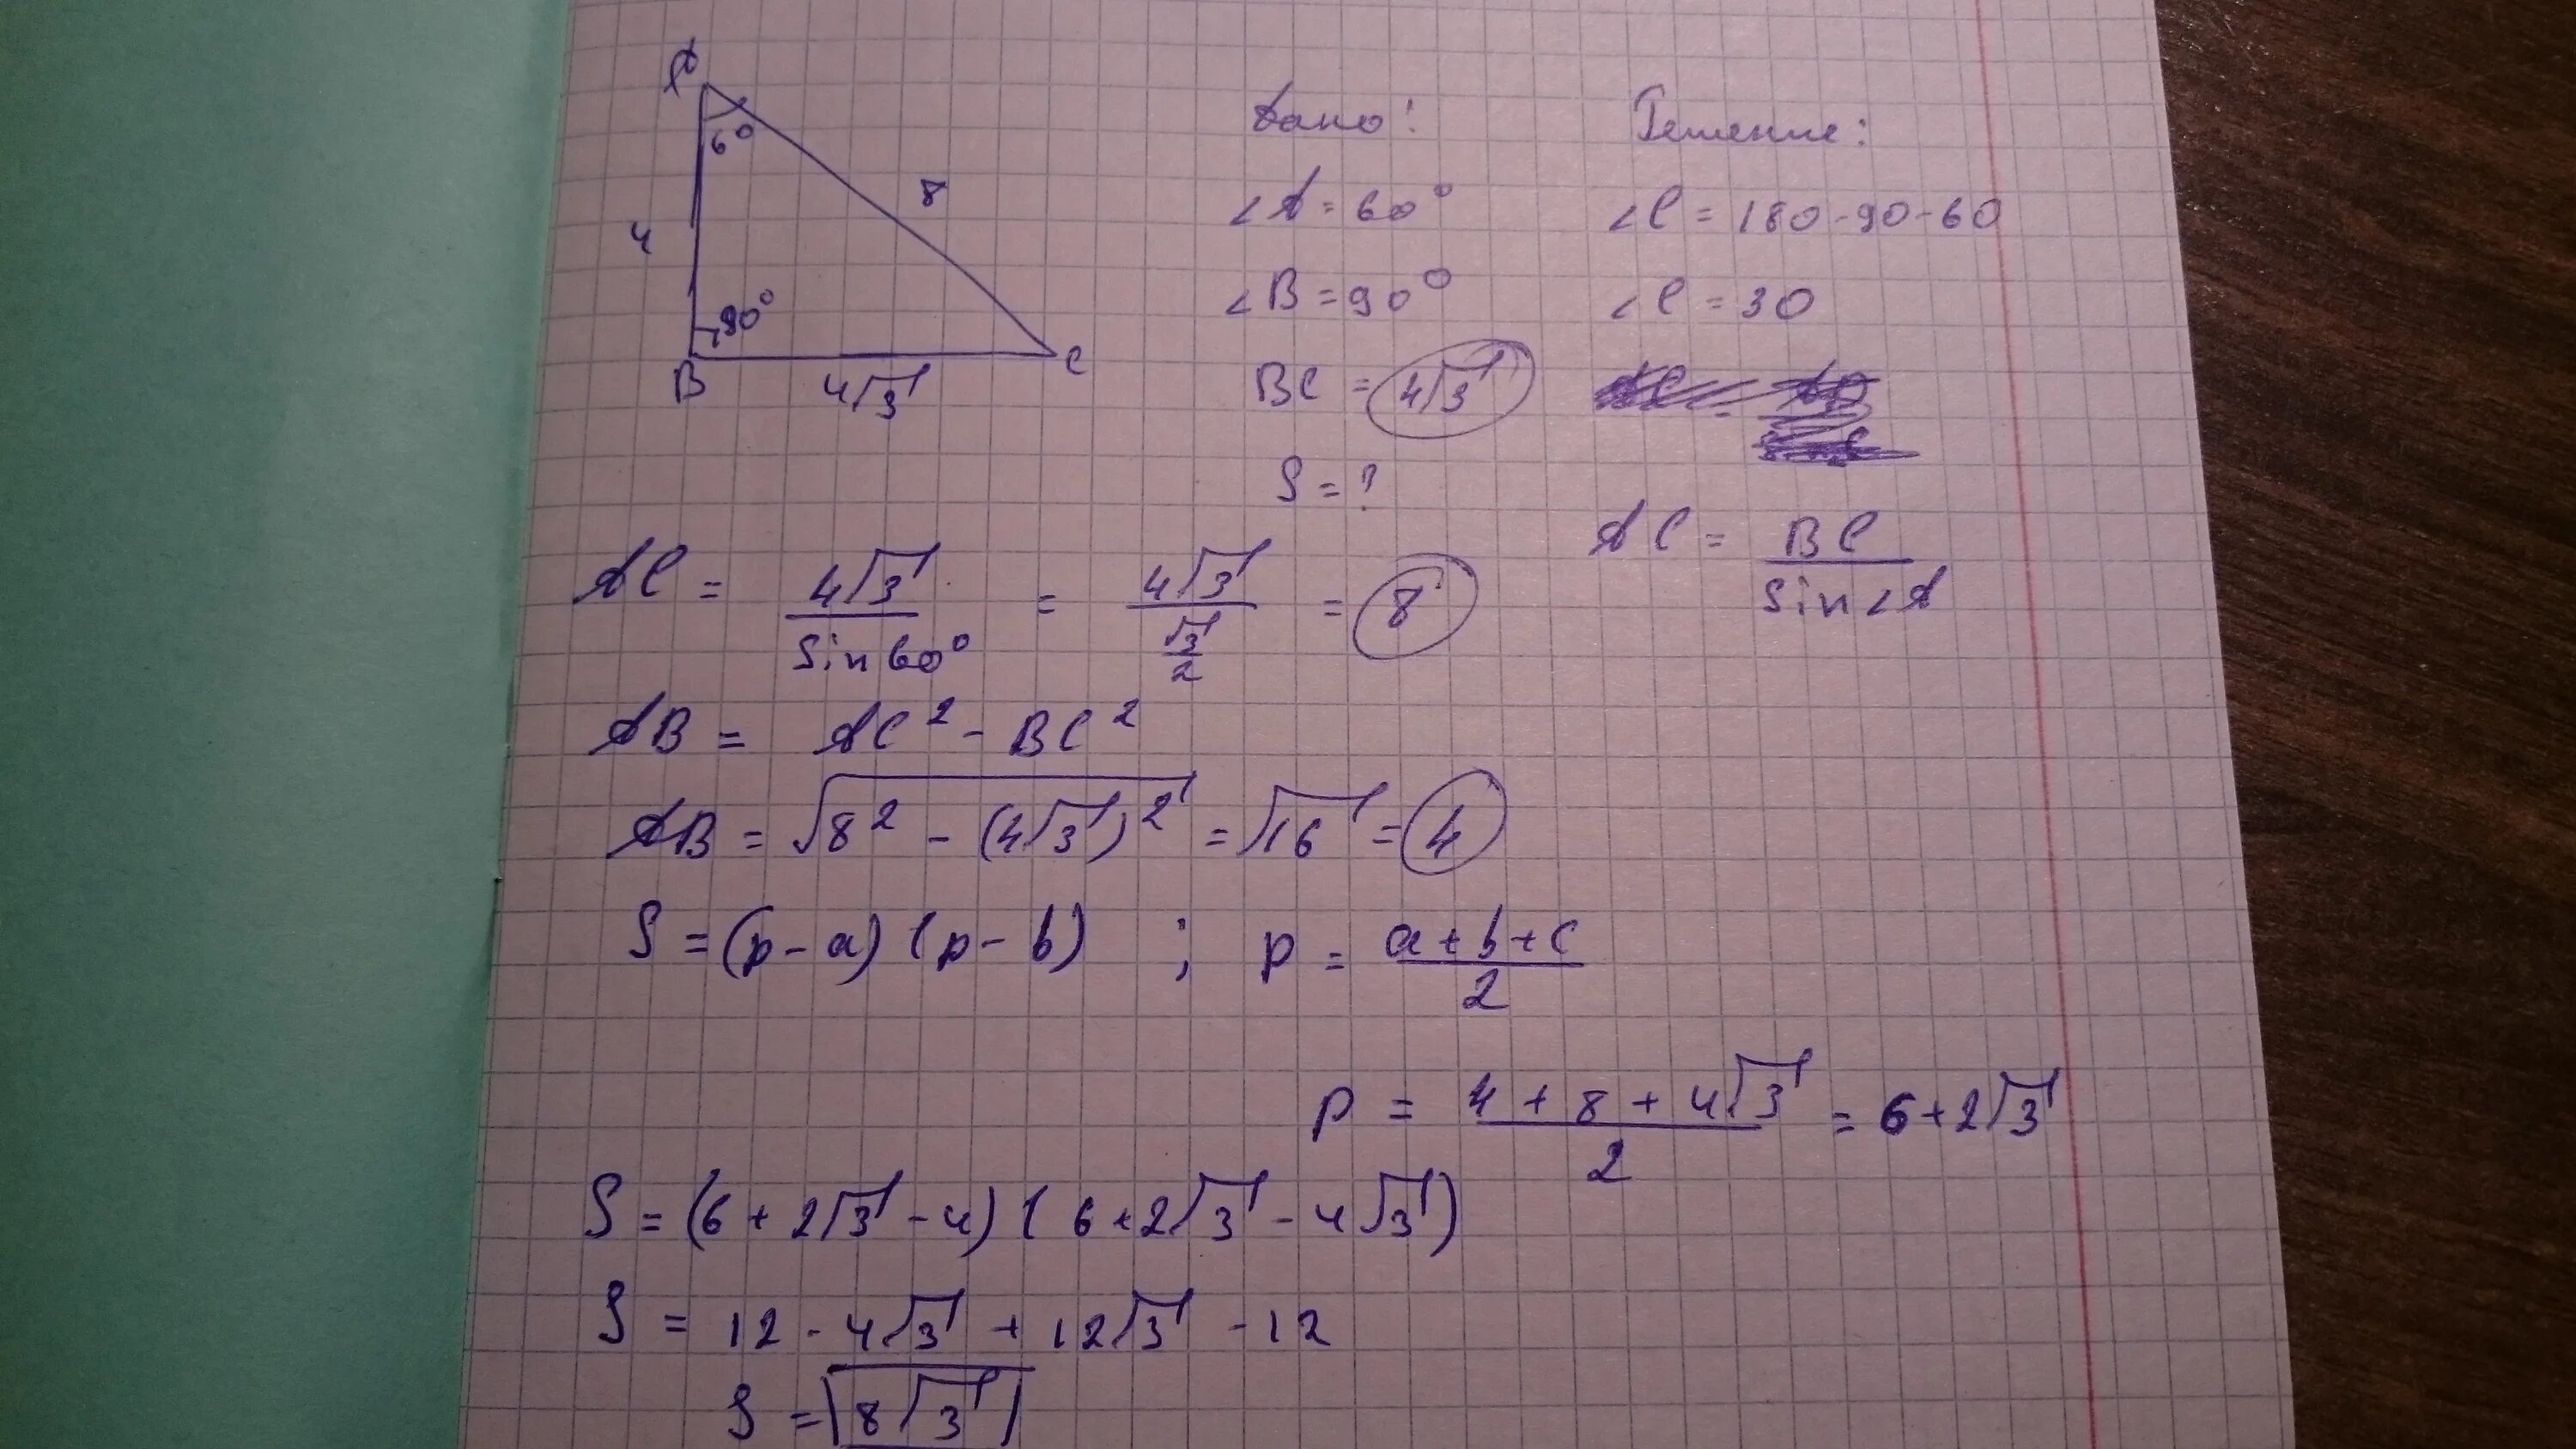 A
6°
8
4
90°
B
4√3
C
Дано:
∠A = 60°
∠B = 90°
BC = 4√3
S = ?
Решение:
∠C = 180 - 90 - 60
∠C = 30
AC = BC / sin∠A
AC = 4√3 / sin60° = 4√3 / (√3/2) = 8
AB = AC² - BC²
AB = √(8² - (4√3)²) = √16 = 4
S = (p - a)(p - b) ; p = (a + b + c) / 2
p = (4 + 8 + 4√3) / 2 = 6 + 2√3
S = (6 + 2√3 - 4)(6 + 2√3 - 4√3)
S = 12 - 4√3 + 12√3 - 12
S = 8√3